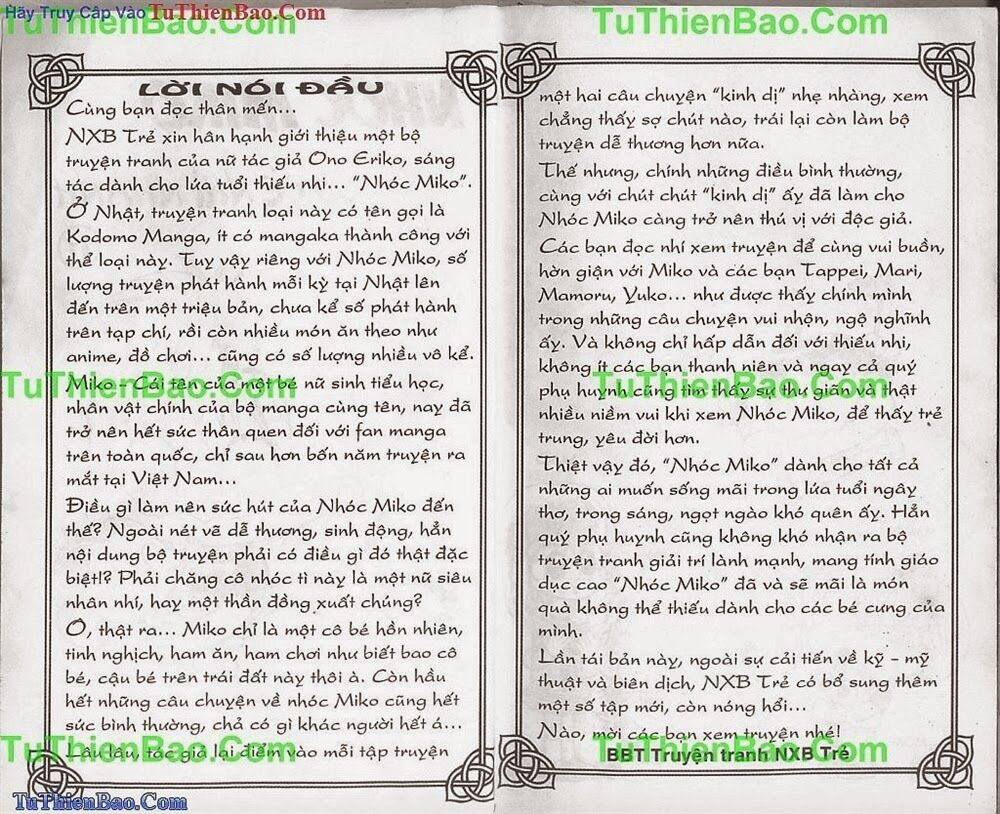 Hãy Truy Cập Vào TuThienBao.Com
TuThienBao.Com
TuThienBao.Com
LỜI NÓI ĐẦU
Cùng bạn đọc thân mến...
NXB Trẻ xin hân hạnh giới thiệu một bộ
truyện tranh của nữ tác giả Ono Eriko, sáng
tác dành cho lứa tuổi thiếu nhi... “Nhóc Miko”.
Ở Nhật, truyện tranh loại này có tên gọi là
Kodomo Manga, ít có mangaka thành công với
thể loại này. Tuy vậy riêng với Nhóc Miko, số
lượng truyện phát hành mỗi kỳ tại Nhật lên
đến trên một triệu bản, chưa kể số phát hành
trên tạp chí, rồi còn nhiều món ăn theo như
anime, đồ chơi... cũng có số lượng nhiều vô kể.
TuThienBao.Com
Miko – Cái tên của một bé nữ sinh tiểu học,
nhân vật chính của bộ manga cùng tên, nay đã
trở nên hết sức thân quen đối với fan manga
trên toàn quốc, chỉ sau hơn bốn năm truyện ra
mắt tại Việt Nam...
Điều gì làm nên sức hút của Nhóc Miko đến
thế? Ngoài nét vẽ dễ thương, sinh động, hẳn
nội dung bộ truyện phải có điều gì đó thật đặc
biệt!? Phải chăng cô nhóc tì này là một nữ siêu
nhân nhí, hay một thần đồng xuất chúng?
Ồ, thật ra... Miko chỉ là một cô bé hồn nhiên,
tinh nghịch, ham ăn, ham chơi như biết bao cô
bé, cậu bé trên trái đất này thôi à. Còn hầu
hết những câu chuyện về nhóc Miko cũng hết
sức bình thường, chả có gì khác người hết á...
TuThienBao.Com
Lâu lâu, tác giả lại điểm vào mỗi tập truyện
TuThienBao.Com
một hai câu chuyện “kinh dị” nhẹ nhàng, xem
chẳng thấy sợ chút nào, trái lại còn làm bộ
truyện dễ thương hơn nữa.
Thế nhưng, chính những điều bình thường,
cùng với chút chút “kinh dị” ấy đã làm cho
Nhóc Miko càng trở nên thú vị với độc giả.
Các bạn đọc nhí xem truyện để cùng vui buồn,
hờn giận với Miko và các bạn Tappei, Mari,
Mamoru, Yuko... như được thấy chính mình
trong những câu chuyện vui nhộn, ngộ nghĩnh
ấy. Và không chỉ hấp dẫn đối với thiếu nhi,
không ít các bạn thanh niên và ngay cả quý
TuThienBao.Com
phụ huynh cũng tìm thấy sự thư giãn và thật
nhiều niềm vui khi xem Nhóc Miko, để thấy trẻ
trung, yêu đời hơn.
Thiệt vậy đó, “Nhóc Miko” dành cho tất cả
những ai muốn sống mãi trong lứa tuổi ngây
thơ, trong sáng, ngọt ngào khó quên ấy. Hẳn
quý phụ huynh cũng không khó nhận ra bộ
truyện tranh giải trí lành mạnh, mang tính giáo
dục cao “Nhóc Miko” đã và sẽ mãi là món
quà không thể thiếu dành cho các bé cưng của
mình.
Lần tái bản này, ngoài sự cải tiến về kỹ – mỹ
thuật và biên dịch, NXB Trẻ có bổ sung thêm
một số tập mới, còn nóng hổi...
Nào, mời các bạn xem truyện nhé!
TuThienBao.Com
BBT Truyện tranh NXB Trẻ